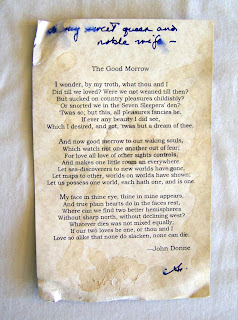 my sweet queen and
noble wife –
The Good Morrow
I wonder, by my troth, what thou and I
Did till we loved? Were we not weaned till then?
But sucked on country pleasures childishly?
Or snorted we in the Seven Sleepers' den?
'Twas so; but this, all pleasures fancies be.
If ever any beauty I did see,
Which I desired, and got, 'twas but a dream of thee.
And now good morrow to our waking souls,
Which watch not one another out of fear;
For love all love of other sights controls,
And makes one little room an everywhere.
Let sea-discoverers to new worlds have gone,
Let maps to other, worlds on worlds have shown;
Let us possess one world, each hath one, and is one.
My face in thine eye, thine in mine appears,
And true plain hearts do in the faces rest,
Where can we find two better hemispheres
Without sharp north, without declining west?
Whatever dies was not mixed equally;
If our two loves be one, or thou and I
Love so alike that none do slacken, none can die.
—John Donne